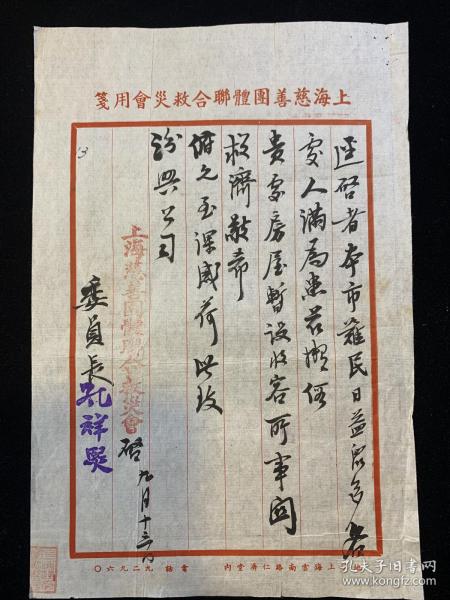 上海慈善團體聯合救災會用箋
逕啓者本市難民日益眾多各
處人滿為患茲擬借
貴處房屋暫設收容所事關
救濟敬希
俯允至深感荷此致
興公司
上海慈善團體聯合救災會 啓 九月十三日
委員長孔祥熙
上海雲南路仁濟堂內 電話 九二九六〇
孔夫子旧书网